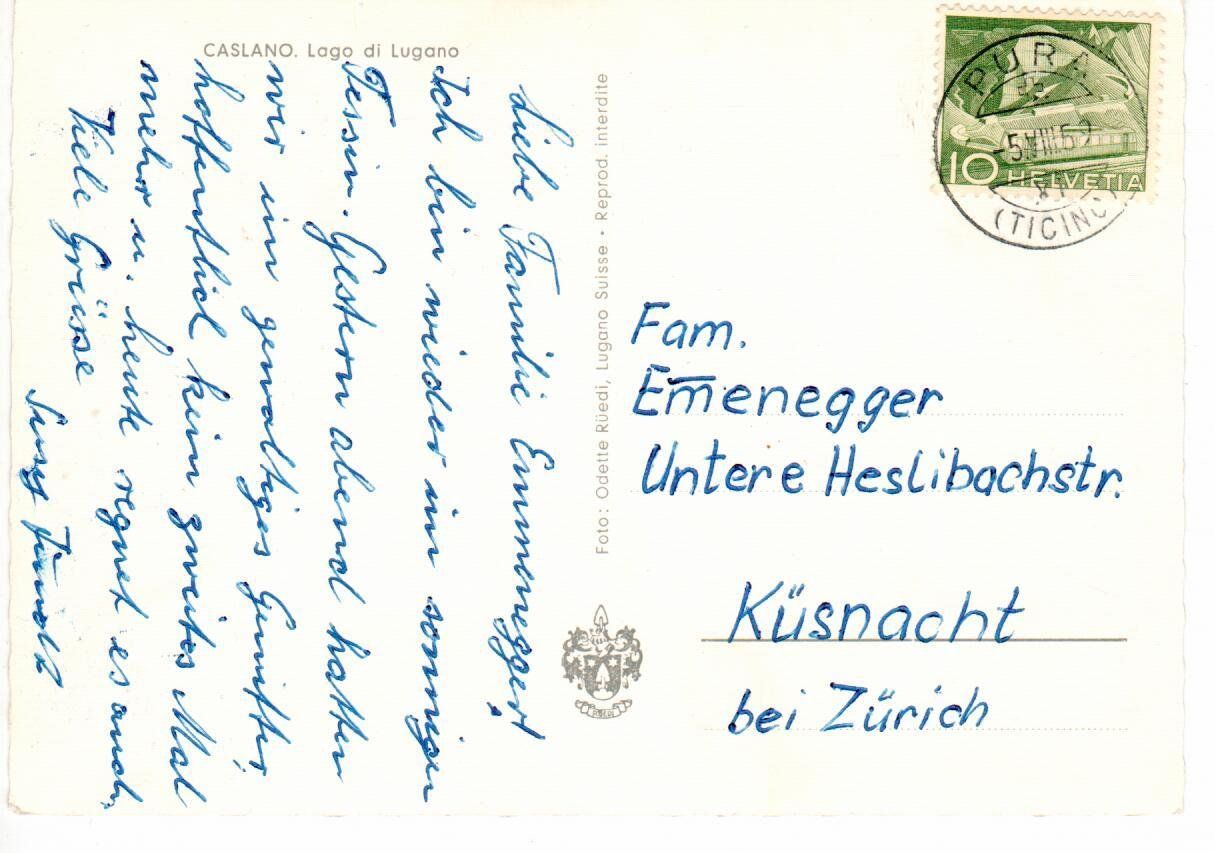 CASLANO. Lago di Lugano
Liebe Familie Emmenegger!
Ich bin wieder im sonnigen
Tessin. Gestern abend hatten
wir ein gewaltiges Gewitter,
hoffentlich kein zweites Mal
mehr u. heute regnet es auch.
Viele Grüsse
Foto: Odette Rüedi, Lugano Suisse • Reprod. interdite
10 HELVETIA
PURA
-5.VIII.5
(TICINO)
Fam.
Em̅enegger
Untere Heslibachstr.
Küsnacht
bei Zürich